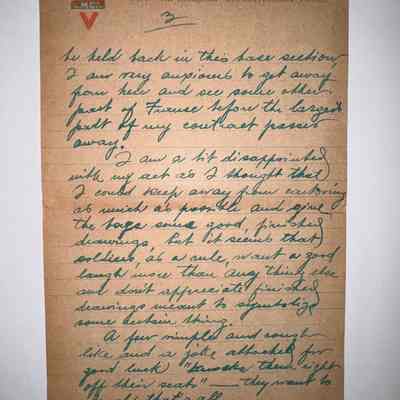 3
be held back in this base section.
I am very anxious to get away
from here and see some other
part of France before the largest
part of my contract passes
away.
I am a bit disappointed
with my act as I thought that
I could keep away from cartooning
as much as possible and give
the boys some good, finished
drawings, but it seems that
soldiers, as a rule, want a good
laugh more than any thing else
and don't appreciate finished
drawings meant to symbolize
some certain thing.
A few simple and rough
like and a joke attached for
good luck " them right
off their seats" — they want to
that's all